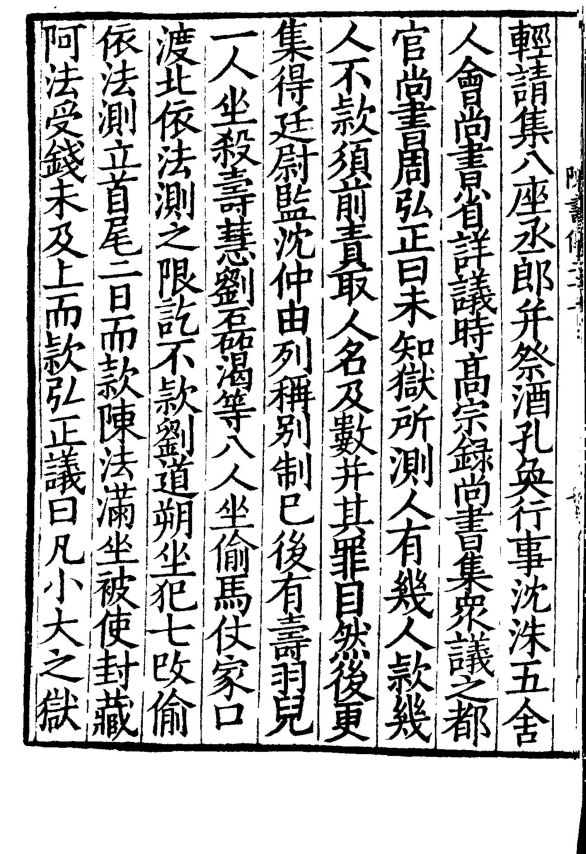 輕請集八座丞郎并祭酒孔奐行事沈洙五舍
人會尚書省詳議時高宗錄尚書集衆議之都
官尚書周弘正曰未知獄所測人有幾人款幾
人不款須前責取人名及數并其罪目然後更
集得廷尉監沈仲由列稱别制已後有壽羽兒
一人坐殺壽慧劉磊渴等八人坐偷馬仗家口
渡北依法測之限訖不款劉道朔坐犯七改偷
依法測立首尾二日而款陳法滿坐被使封藏
阿法受錢未及上而款弘正議曰凡小大之獄